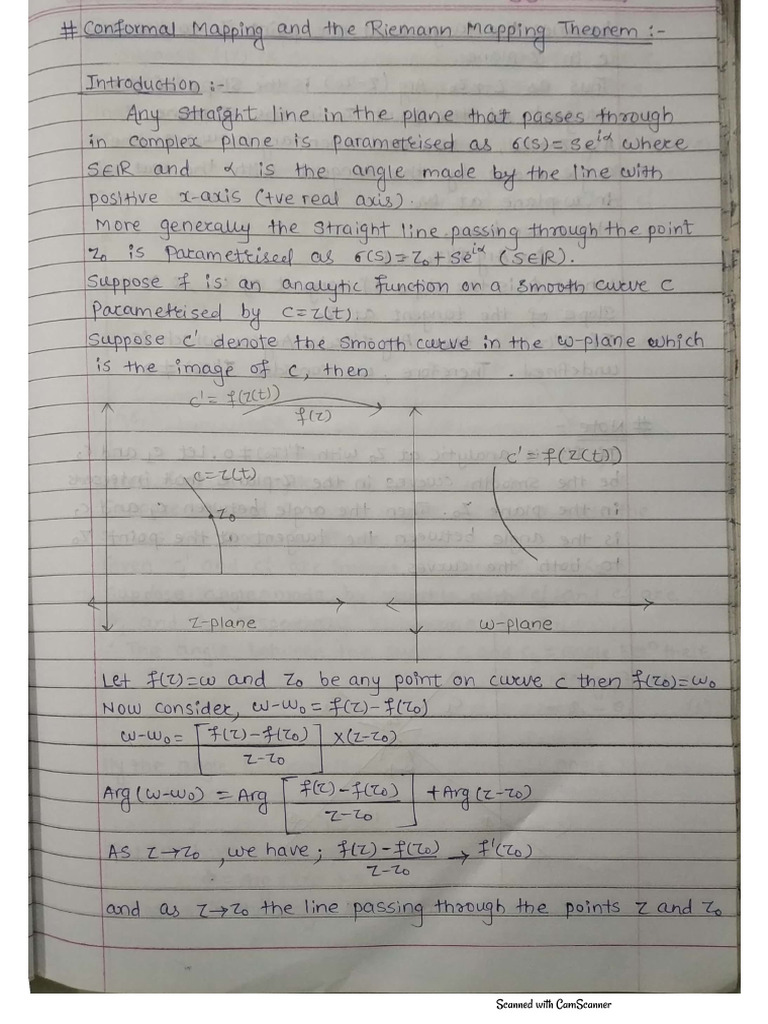 # Conformal Mapping and the Riemann Mapping Theorem :-
Introduction :-
Any straight line in the plane that passes through
in complex plane is parametrised as σ(s) = se^{iα} where
s∈R and α is the angle made by the line with
positive x-axis (+ve real axis).
More generally the straight line passing through the point
z₀ is parametrised as σ(s) = z₀ + se^{iα} (s∈R).
Suppose f is an analytic function on a smooth curve C
Parametrised by C = z(t).
Suppose C' denote the smooth curve in the w-plane which
is the image of C, then
C' = f(z(t))
f(z)
C' = f(z(t))
C = z(t)
z₀
z-plane
w-plane
Let f(z) = w and z₀ be any point on curve C then f(z₀) = w₀
Now consider, w-w₀ = f(z) - f(z₀)
w-w₀ = [f(z) - f(z₀) / z-z₀] × (z-z₀)
Arg(w-w₀) = Arg [f(z) - f(z₀) / z-z₀] + Arg(z-z₀)
As z→z₀, we have; f(z) - f(z₀) / z-z₀ → f'(z₀)
and as z→z₀ the line passing through the points z and z₀
Scanned with CamScanner